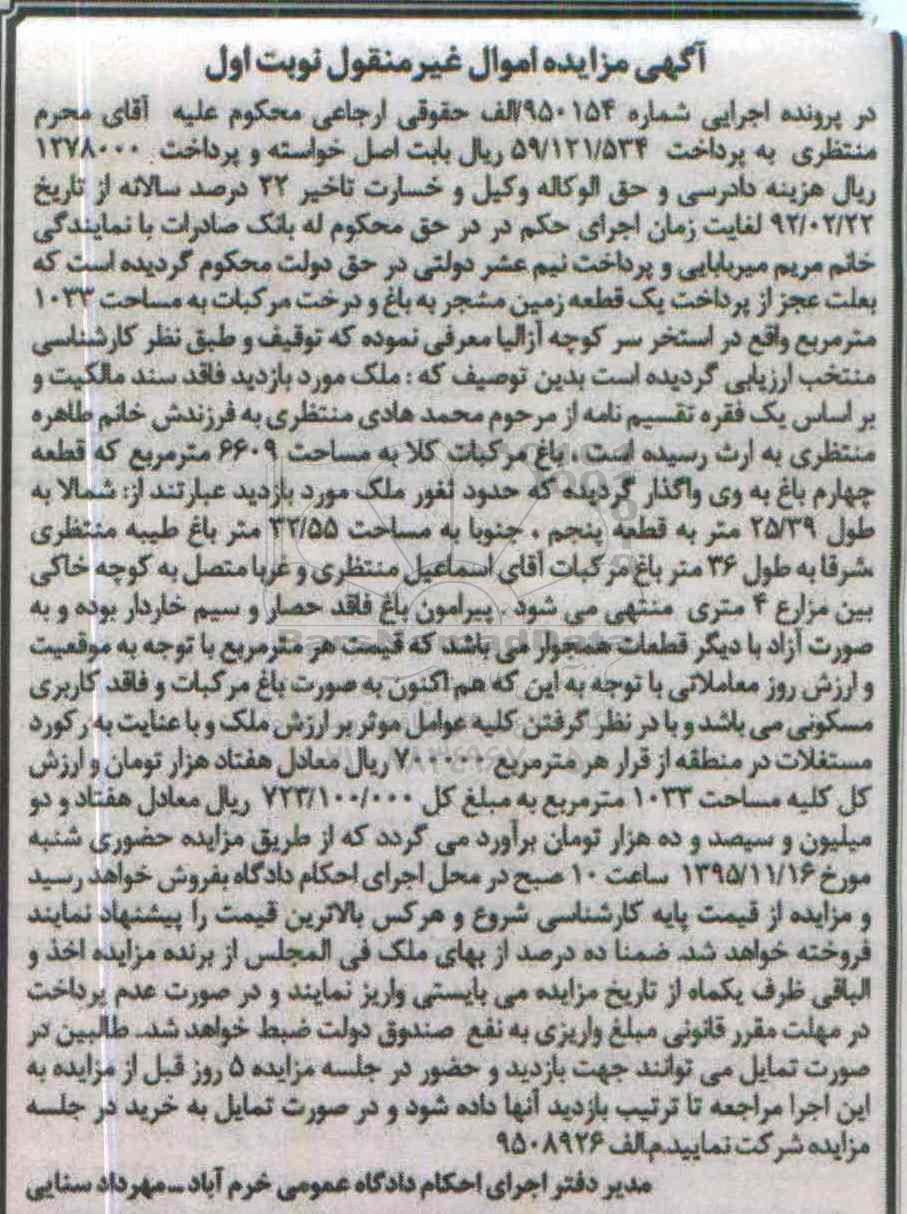 آگهی مزایده اموال غیر منقول نوبت اول
در پرونده اجرایی شماره ۹۵۰۱۵۴/الف حقوقی ارجاعی محکوم علیه آقای محرم
منتظری به پرداخت ۵۹/۱۲۱/۵۳۴ ریال بابت اصل خواسته و پرداخت ۱۲۷۸۰۰۰
ریال هزینه دادرسی و حق الوکاله وکیل و خسارت تاخیر ۲۲ درصد سالانه از تاریخ
۹۲/۰۲/۲۲ لغایت زمان اجرای حکم در در حق محکوم له بانک صادرات با نمایندگی
خانم مریم میربابایی و پرداخت نیم عشر دولتی در حق دولت محکوم گردیده است که
بعلت عجز از پرداخت یک قطعه زمین مشجر به باغ و درخت مرکبات به مساحت ۱۰۳۳
مترمربع واقع در استخر سر کوچه آزالیا معرفی نموده که توقیف و طبق نظر کارشناسی
منتخب ارزیابی گردیده است بدین توصیف که : ملک مورد بازدید فاقد سند مالکیت و
بر اساس یک فقره تقسیم نامه از مرحوم محمد هادی منتظری به فرزندش خانم طاهره
منتظری به ارث رسیده است . باغ مرکبات کلا به مساحت ۶۶۰۹ مترمربع که قطعه
چهارم باغ به وی واگذار گردیده که حدود ثغور ملک مورد بازدید عبارتند از: شمالا به
طول ۲۵/۳۹ متر به قطعه پنجم ، جنوبا به مساحت ۳۲/۵۵ متر باغ طیبه منتظری
،شرقا به طول ۳۶ متر باغ مرکبات آقای اسماعیل منتظری و غربا متصل به کوچه خاکی
بین مزارع ۴ متری منتهی می شود . پیرامون باغ فاقد حصار و سیم خاردار بوده و به
صورت آزاد با دیگر قطعات همجوار می باشد که قیمت هر مترمربع با توجه به موقعیت
و ارزش روز معاملاتی با توجه به این که هم اکنون به صورت باغ مرکبات و فاقد کاربری
مسکونی می باشد و با در نظر گرفتن کلیه عوامل موثر بر ارزش ملک و با عنایت به رکورد
مستغلات در منطقه از قرار هر مترمربع ۷۰۰۰۰۰ ریال معادل هفتاد هزار تومان و ارزش
کل کلیه مساحت ۱۰۳۳ مترمربع به مبلغ کل ۷۲۳/۱۰۰/۰۰۰ ریال معادل هفتاد و دو
میلیون و سیصد و ده هزار تومان برآورد می گردد که از طریق مزایده حضوری شنبه
مورخ ۱۳۹۵/۱۱/۱۶ ساعت ۱۰ صبح در محل اجرای احکام دادگاه بفروش خواهد رسید
و مزایده از قیمت پایه کارشناسی شروع و هرکس بالاترین قیمت را پیشنهاد نمایند
فروخته خواهد شد. ضمنا ده درصد از بهای ملک فی المجلس از برنده مزایده اخذ و
الباقی ظرف یکماه از تاریخ مزایده می بایستی واریز نمایند و در صورت عدم پرداخت
در مهلت مقرر قانونی مبلغ واریزی به نفع صندوق دولت ضبط خواهد شد. طالبین در
صورت تمایل می توانند جهت بازدید و حضور در جلسه مزایده ۵ روز قبل از مزایده به
این اجرا مراجعه تا ترتیب بازدید آنها داده شود و در صورت تمایل به خرید در جلسه
مزایده شرکت نمایید.م.الف ۹۵۰۸۹۲۶
مدیر دفتر اجرای احکام دادگاه عمومی خرم آباد ـ مهرداد سنایی
ParsNamadData